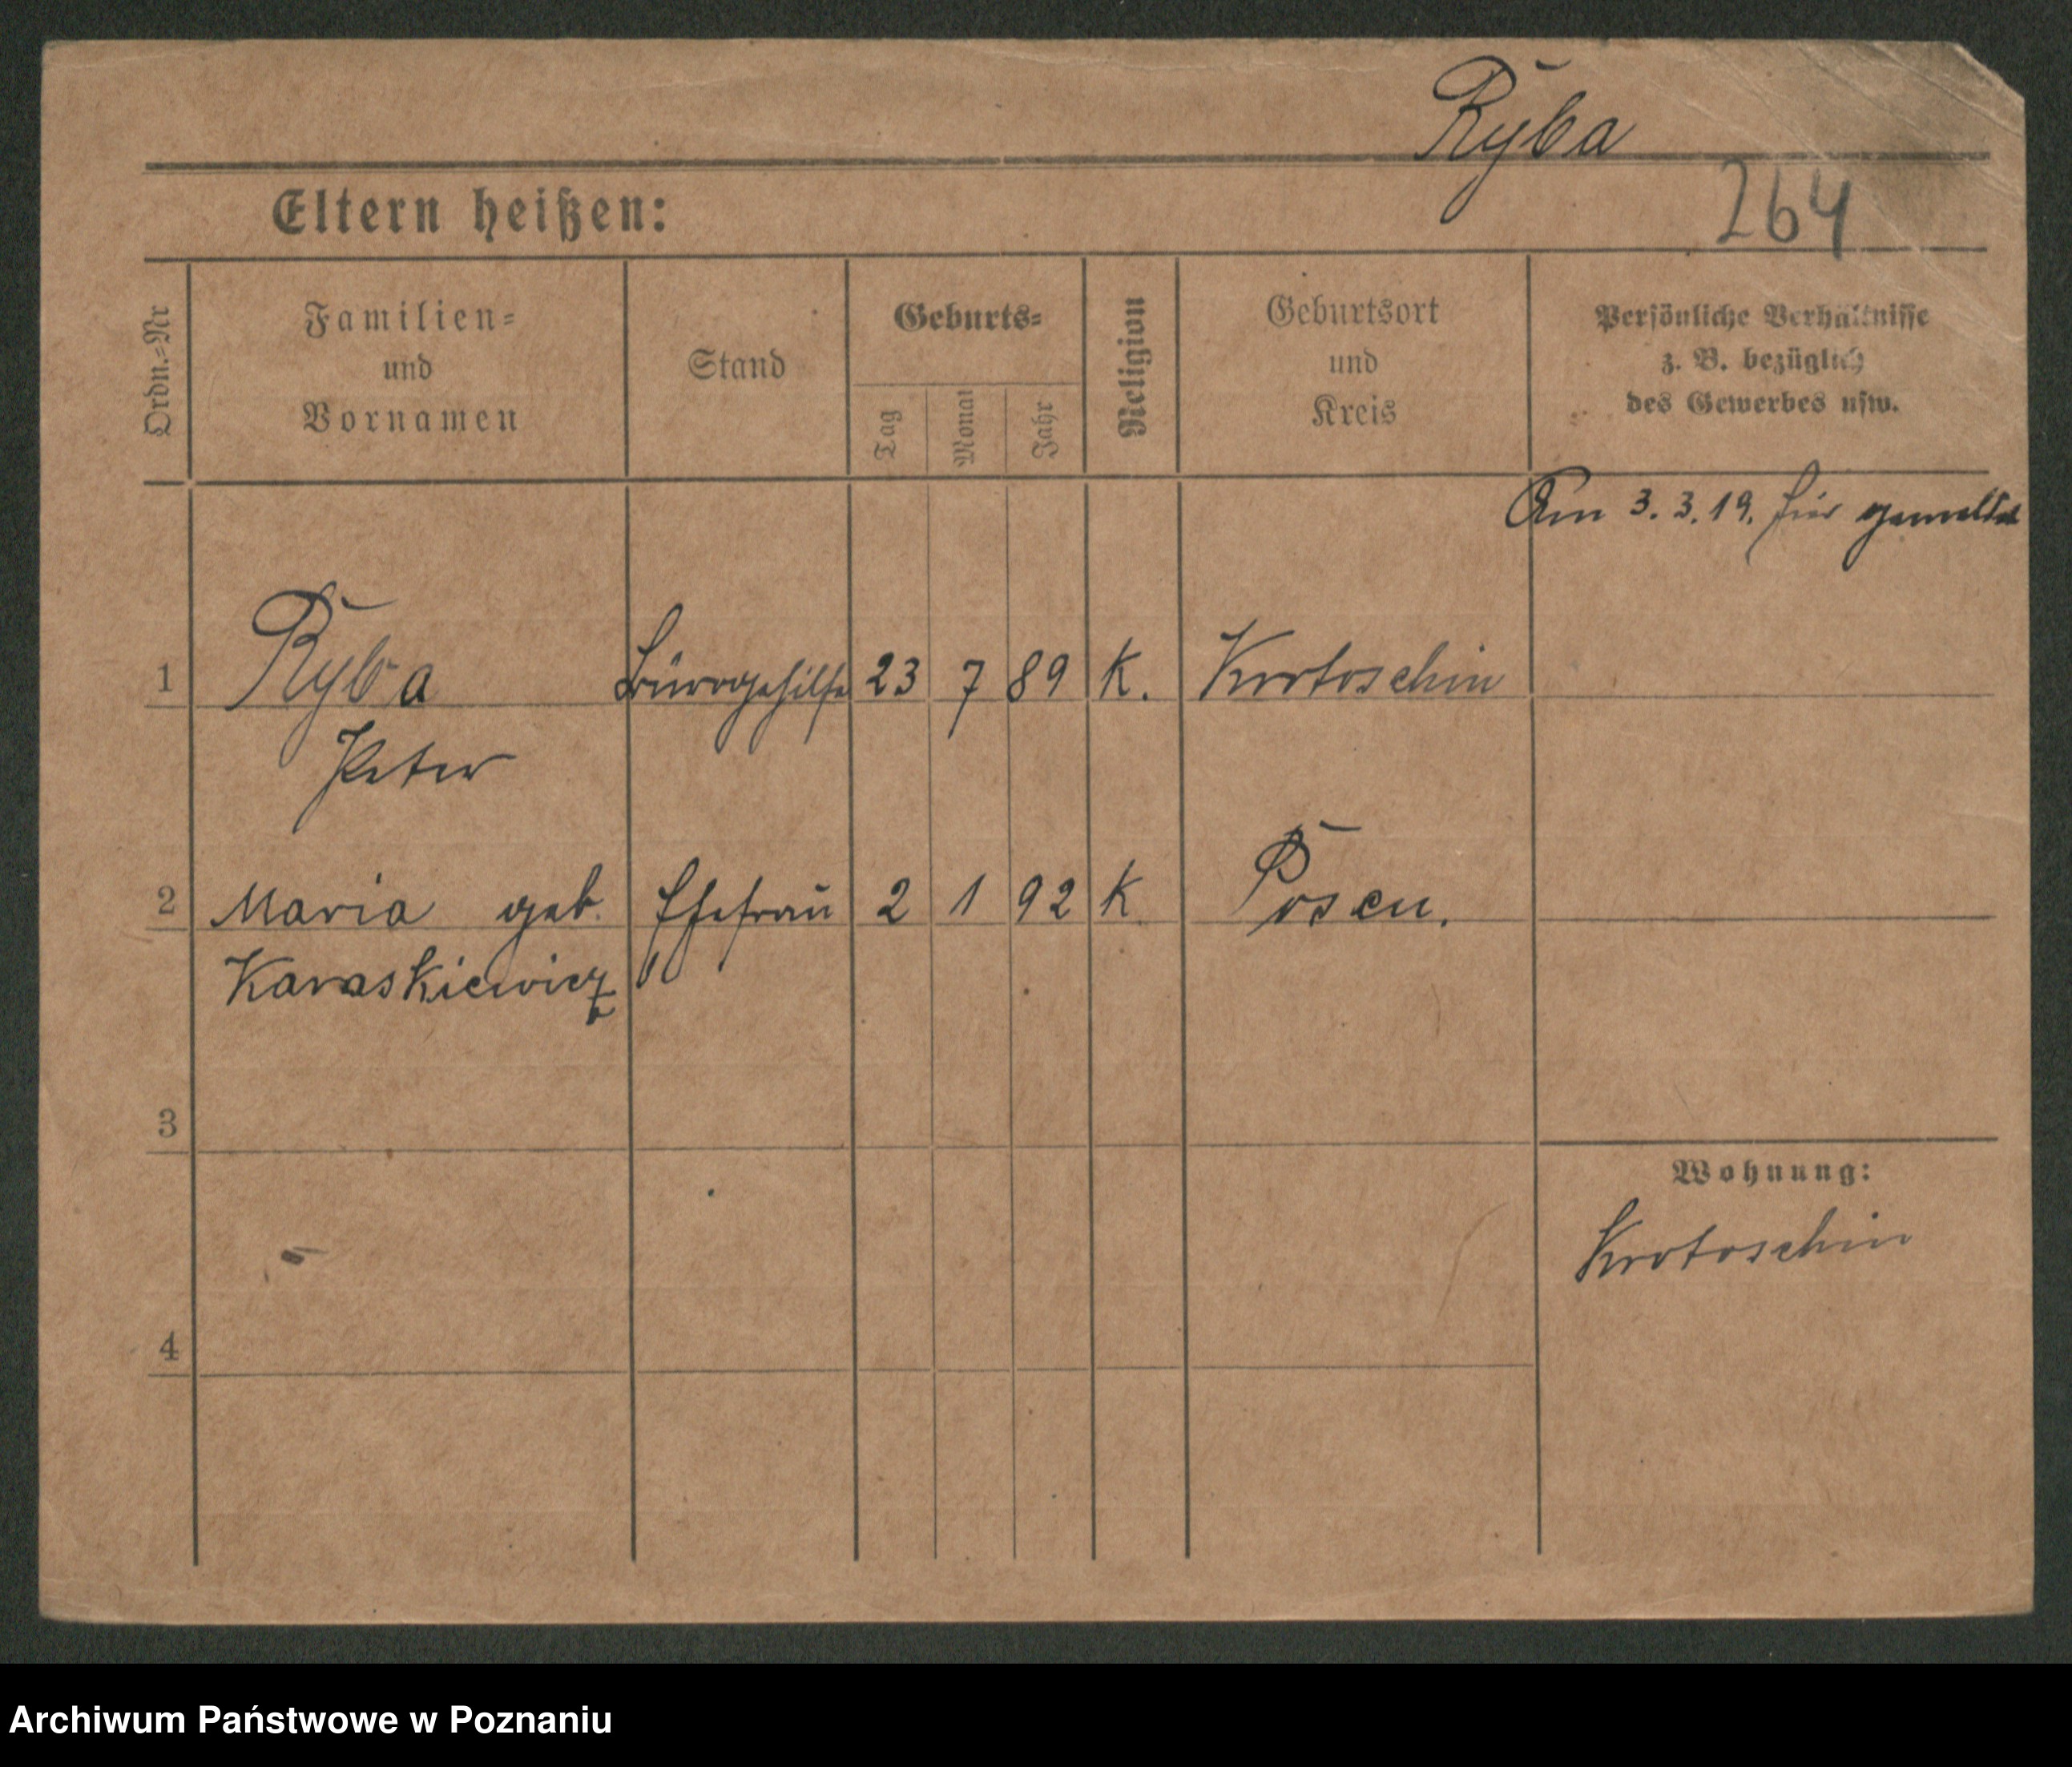 Ryba
264
Eltern heißen:
Ordn.=Nr
Familien=
und
Vornamen
Stand
Geburts=
Tag
Monat
Jahr
Religion
Geburtsort
und
Kreis
Persönliche Verhältnisse
z. B. bezüglich
des Gewerbes usw.
Am 3. 3. 19. hier gemeldet
1 Ryba Bürogehilfe 23 7 89 K. Krotoschin
Peter
2 Maria geb. Ehefrau 2 1 92 K Posen.
Karaskiewicz
3
Wohnung:
Krotoschin
4
Archiwum Państwowe w Poznaniu